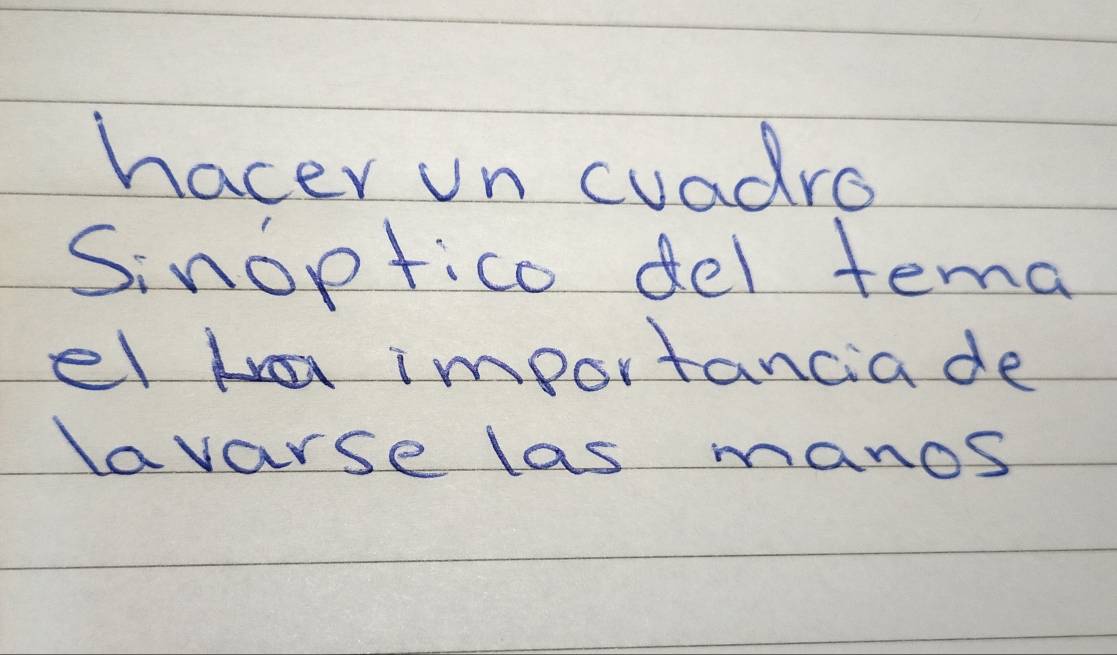 hacer un cuadro
Sinóptico del tema
el La importancia de
lavarse las manos